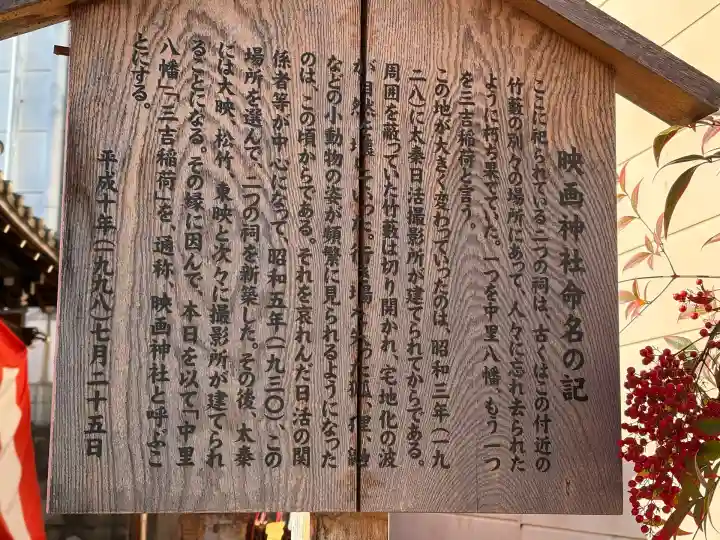 映画神社命名の記
ここに祀られている二つの祠は、古くはこの付近の
竹藪の別々の場所にあって、人々に忘れ去られた
ように朽ち果てていた。一つを中里八幡、もう一つ
を三吉稲荷と言う。
この地が大きく変わっていったのは、昭和三年(一九
二八)に太秦日活撮影所が建てられてからである。
周囲を敵っていた竹藪は切り開かれ、宅地化の波
が 自然を 失った狐、狸、
などの小動物の姿が頻繁に見られるようになった
のは、この頃からである。それを哀れんだ日活の関
係者等が中心になって、昭和五年(一九三〇)、この
場所を選んで、二つの祠を新築した。その後、太秦
には大映、松竹、東映と次々に撮影所が建てられ
ることになる。その縁に因んで、本日を以て「中里
八幡」「三吉稲荷」を、通称、映画神社と呼ぶこ
とにする。
平成十年(一九九八)七月二十五日